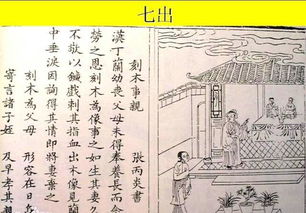 七出
刻木事親　張丙炎書
漢丁蘭幼喪父母未得奉養長而念
勞之恩刻木為像事之如生其妻久
不敬以鍼戲刺其指血出木像見蘭
中垂淚因詢得其情即將妻棄之
刻木為父母　形容在日
寄言諸子姪　及早孝其親